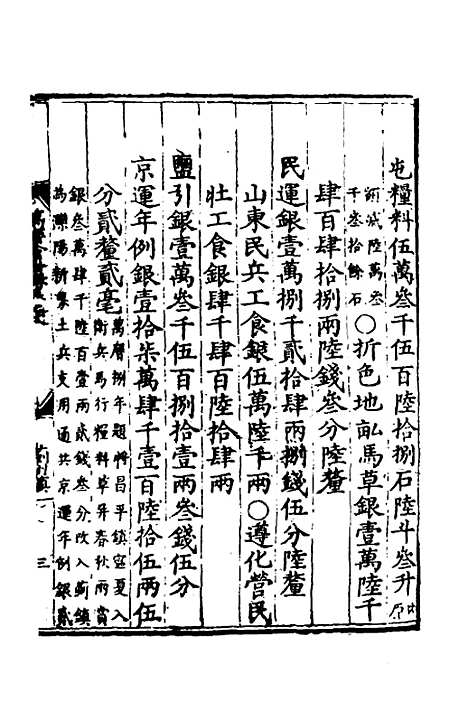 屯糧料伍萬叁千伍百陸拾捌石陸斗叁升
原額減陸萬叁千叁拾餘石○折色地畝馬草銀壹萬陸千
肆百肆拾捌兩陸錢叁分陸釐
民運銀壹萬捌千貳拾肆兩捌錢伍分陸釐
山東民兵工食銀伍萬陸千兩○遵化營民
壯工食銀肆千肆百陸拾肆兩
鹽引銀壹萬叁千伍百捌拾壹兩叁錢伍分
京運年例銀壹拾柒萬肆千壹百陸拾伍兩伍
分貳釐貳毫萬曆捌年題將昌平鎮寇夏入衛兵馬行糧料草并春秋兩賞
銀叁萬肆千陸百壹兩貳錢叁分改入薊鎮
為灤陽新募土兵支用通共京運年例銀貳
三